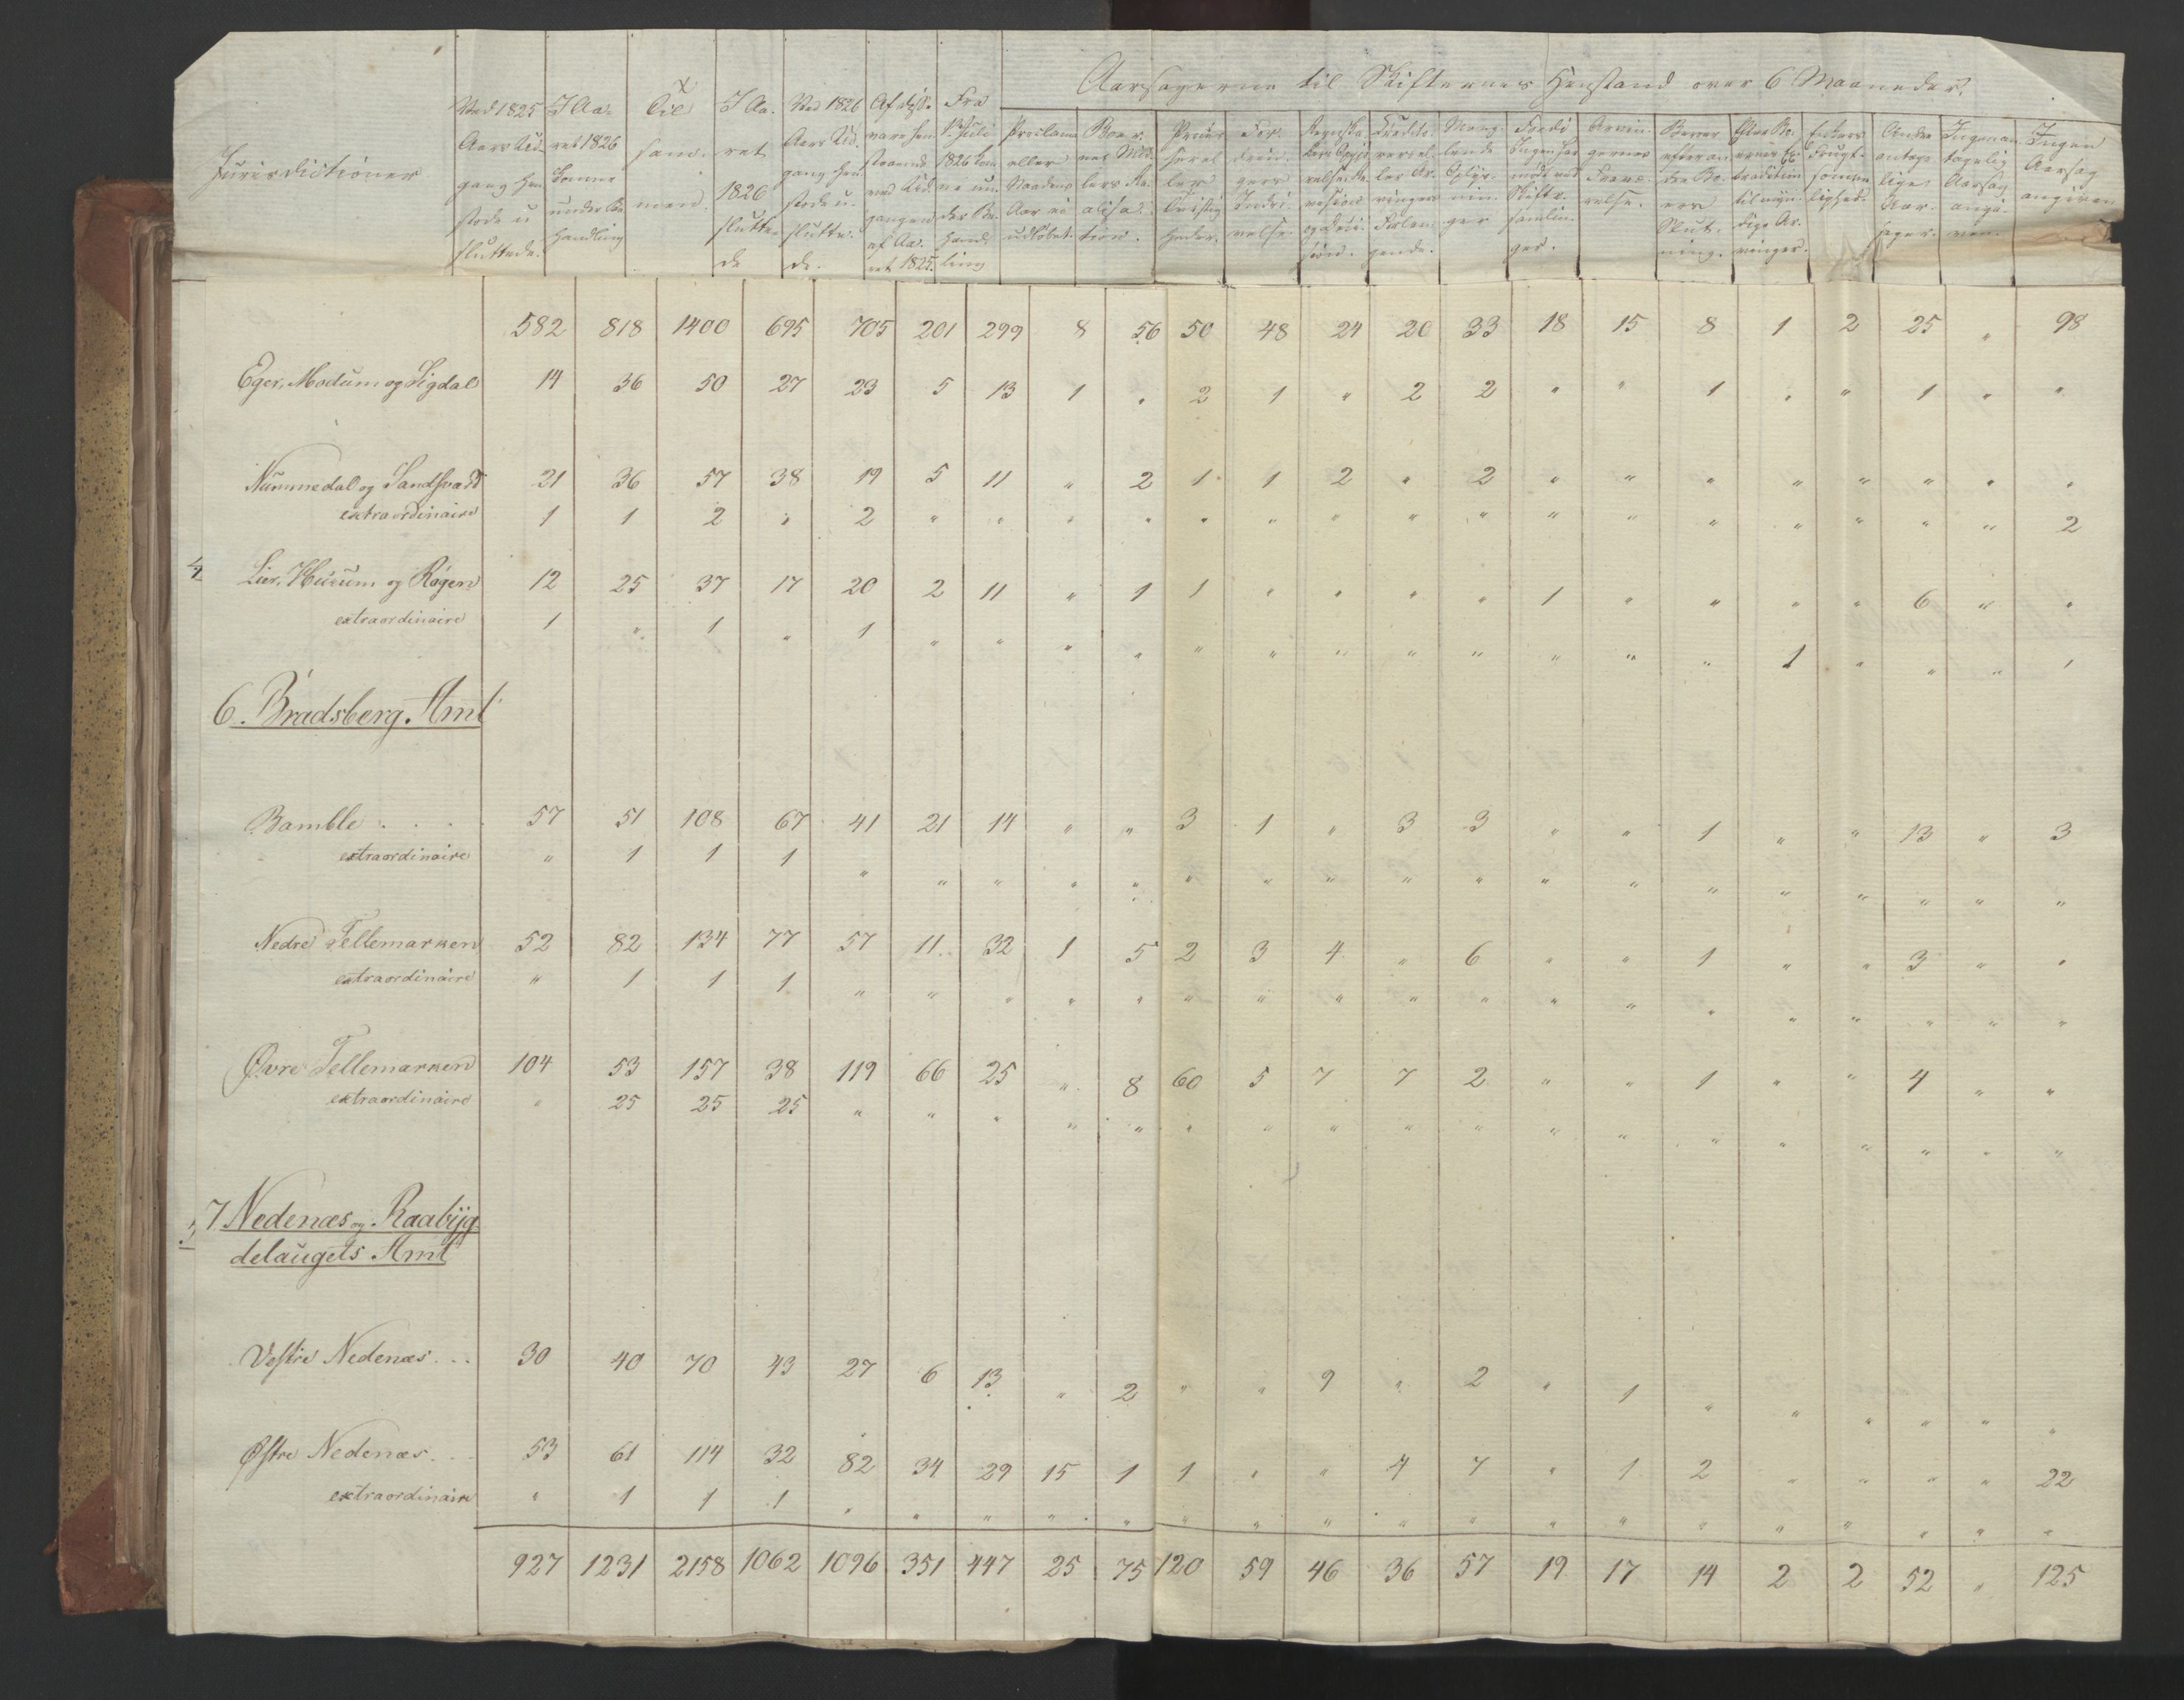 Aarsagerne til Skifternes Henstand over 6 Maaneder.
Jurisdictioner
Ved 1825 Aars Udgang henstode usluttede.
I Aaret 1826 komne under Behandling
Tilsammen.
I Aaret 1826 sluttede
Ved 1826 Aars Udgang henstode uslutte de.
Af disse vare henstaaende ved Udgangen af Aaret 1825.
Fra 1ste Juli 1826 kom ne under Behandling
Proclama eller Maaneds Aar ei udløbet.
Boernes Midlers Realisation.
Processer eller Tvistigheder.
Fordringers Inddrivelse
Creditorer eller Arvinger Fraværende.
Manglende Oplysninger
Fordi Ingen har mødt ved Skiftesamlinger.
Arvingernes Fravæ relse.
Boernes efter andre Boers Slutning.
Andre antagelige Aarsager.
Ingen antagelig Aarsag angiven.
Ingen Aarsag angiven
582 818 1400 695 705 201 299 8 56 50 48 24 20 33 18 15 8 1 2 25 " 98
Eger, Modum og Sigdal 14 36 50 27 23 5 13 1 " 2 1 " 2 2 " " 1 " " 1 " "
Nummedal og Sandsværd 21 36 57 38 19 5 11 " 2 1 1 2 " 2 " " " " " " " "
extraordinaire 1 1 2 " 2 " " " " " " " " " " " " " " " " 2
4 Lier, Hurum og Røgen 12 25 37 17 20 2 11 " 1 1 " " " " 1 " " " " 6 " "
extraordinaire 1 " 1 " 1 " " " " " " " " " " " " 1 " " " "
6. Bradsberg Amt
Bamble . . . . 57 51 108 67 41 21 14 " " 3 1 " 3 3 " " 1 " " 13 " 3
extraordinaire " 1 1 1 " " " " " " " " " " " " " " " " " "
Nedre Tellemarken 52 82 134 77 57 11 32 1 5 2 3 4 " 6 " " 1 " " 3 " "
extraordinaire " 1 1 1 " " " " " " " " " " " " " " " " " "
Øvre Tellemarken 104 53 157 38 119 66 25 " 8 60 5 7 7 2 " " 1 " " 4 " "
extraordinaire " 25 25 25 " " " " " " " " " " " " " " " " " "
7 Nedenæs og Raabÿg-
delaugets Amt
Vestre Nedenæs . . . 30 40 70 43 27 6 13 " 2 " " 9 " 2 " 1 " " " " " "
Østre Nedenæs . . . 53 61 114 32 82 34 29 15 1 1 " " 4 7 " 1 2 " " " " 22
extraordinaire " 1 1 1 " " " " " " " " " " " " " " " " " "
927 1231 2158 1062 1096 351 447 25 75 120 59 46 36 57 19 17 14 2 2 52 " 125